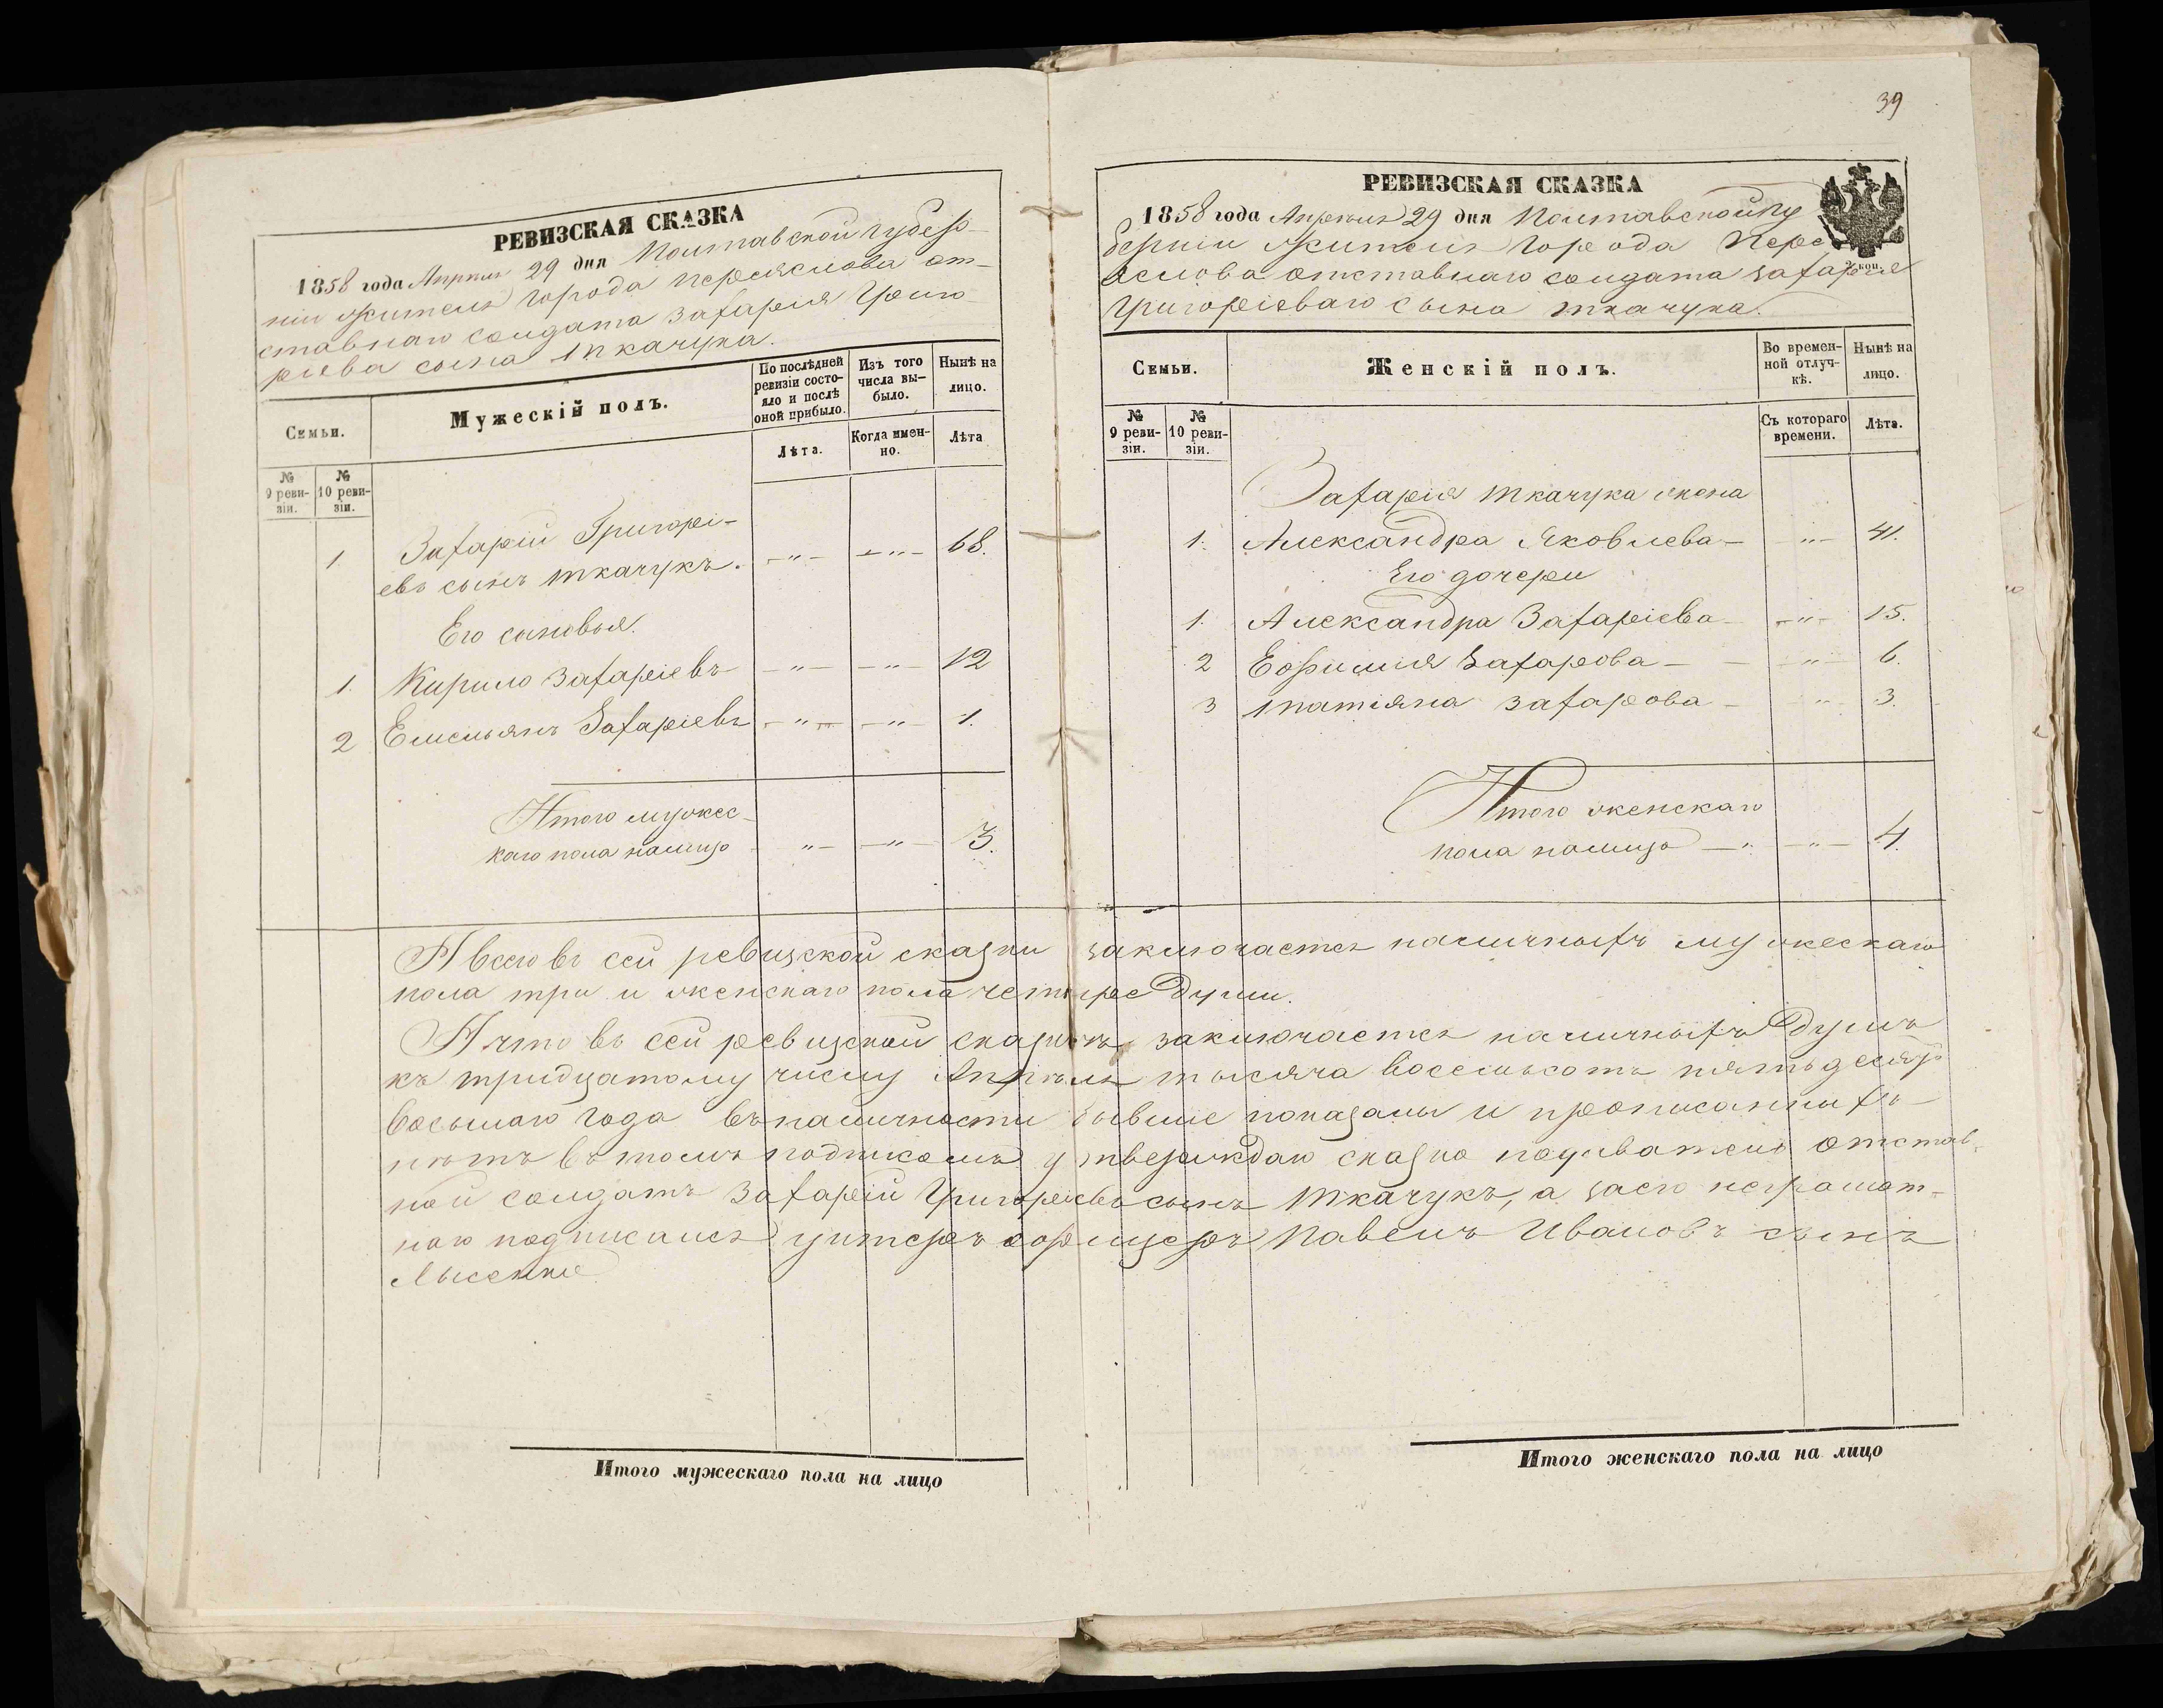 РЕВИЗСКАЯ СКАЗКА
1858 года Апреля 29 дня Полтавской губер-
ніи Жителя города Переяслова от-
ставнаго солдата Захарія Григо
ріева сына Ткачука.
Семьи.
Мужескій полъ.
По послѣдней
ревизіи состо-
яло и послѣ
оной прибыло.
Изъ того
числа вы-
было.
Нынѣ на
лицо.
Лѣта.
Когда имен-
но.
Лѣта
№
9 реви-
зіи.
№
10 реви-
зіи.
Захарій Григорі-
1 евъ сынъ Ткачукъ. -"- -"- 68.
Его сыновья.
1. Кирило Захаріевъ -"- -"- 12
2 Емельянъ Захаріевъ -"- -"- 1.
Итого мужес-
каго пола налицо -"- -"- 3.
39
РЕВИЗСКАЯ СКАЗКА
1858 года Апреля 29 дня Полтавской Гу
берніи Жителя города Пере
яслова отставнаго солдата Захарія
2 коп.
Григоріеваго сына Ткачука.
Семьи.
Женскій полъ.
Во времен-
ной отлуч-
кѣ.
Нынѣ на
лицо.
№
9 реви-
зіи.
№
10 реви-
зіи.
Съ котораго
времени.
Лѣта.
Захарія Ткачука жена
1. Александра Яковлева - -"- 41.
Его дочери
1. Александра Захаріева - -"- 15.
2 Еофимия Захарова - - -"- 6.
3 Татіяна Захарова - -"- 3.
Итого женскаго
пола налицо -"- -"- 4.
А всего въ сей ревизской сказки заключается наличныхъ мужескаго
пола три и женскаго пола четыре души.
А что въ сей ревизской сказкѣ заключается наличныхъ душъ
къ тридцатому числу Апреля тысяча восемьсотъ пятьдесятъ
восьмаго года въ наличности бывшие показаны и прописанныхъ
нѣтъ въ томъ подпискою утверждаю сказко подаватель отстав-
ной солдатъ Захарій Григоріевъ сынъ Ткачукъ, а за его неграмот-
наго подписался унтеръ офицеръ Павелъ Ивановъ сынъ
Лысенко
Итого мужескаго пола на лицо
Итого женскаго пола на лицо